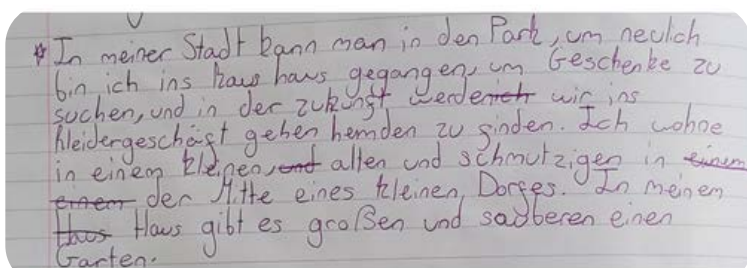 * In meiner Stadt kann man in den Park, um neulich
bin ich ins kaus haus gegangen, um Geschenke zu
suchen, und in der zukunft werden wir ins
kleidergeschäft gehen hemden zu finden. Ich wohne
in einem kleinen, alten und schmutzigen in
der Mitte eines kleinen Dorfes. In meinem
Haus gibt es großen und sauberen einen
Garten.